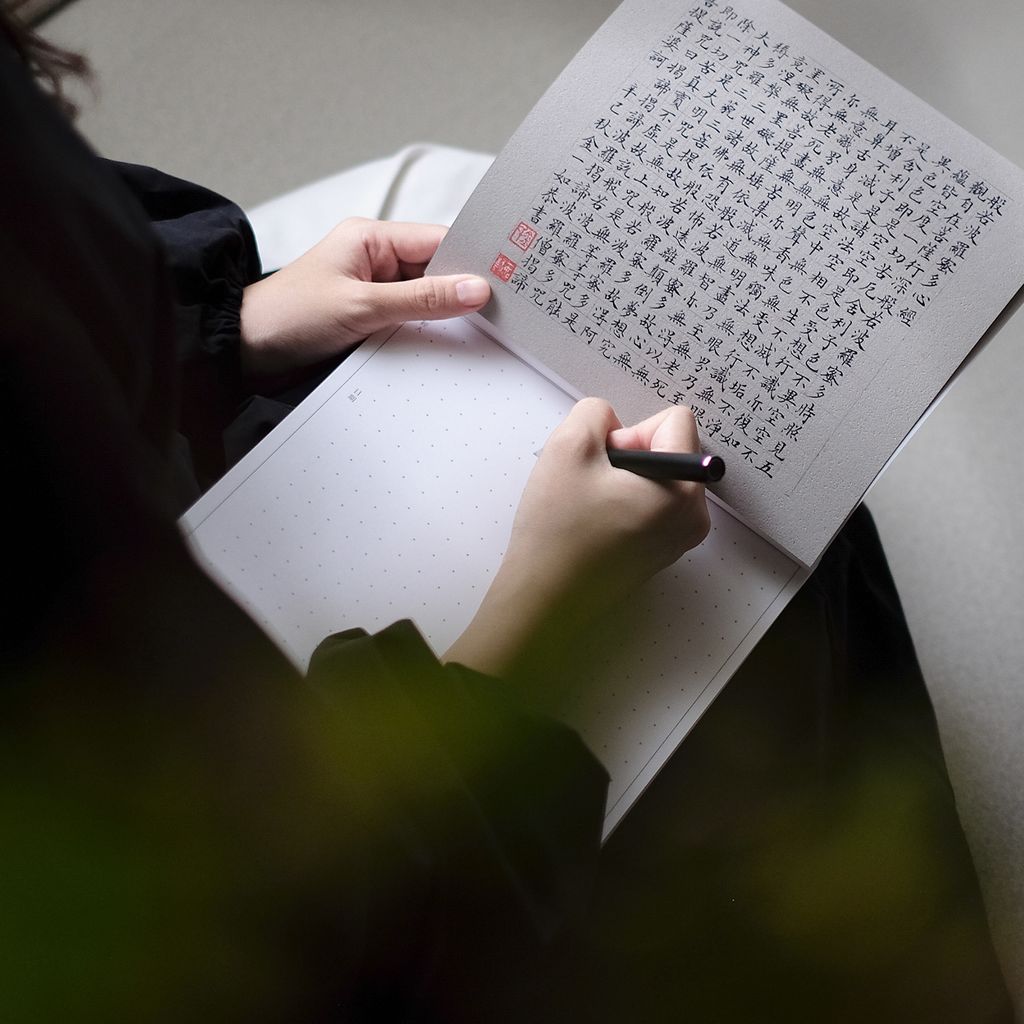 般若波羅蜜多心經
觀自在菩薩行深般若波羅蜜多時照見五
蘊皆空度一切苦厄舍利子色不異空空不
異色色即是空空即是色受想行識亦復如
是舍利子是諸法空相不生不滅不垢不淨
不增不減是故空中無色無受想行識無眼
耳鼻舌身意無色聲香味觸法無眼界乃至
無意識界無無明亦無無明盡乃至無老死
亦無老死盡無苦集滅道無智亦無得以無
所得故菩提薩埵依般若波羅蜜多故心無
罣礙無罣礙故無有恐怖遠離顛倒夢想究
竟涅槃三世諸佛依般若波羅蜜多故得阿
耨多羅三藐三菩提故知般若波羅蜜多是
大神咒是大明咒是無上咒是無等等咒能
除一切苦真實不虛故說般若波羅蜜多咒
即說咒曰揭諦揭諦波羅揭諦波羅僧揭諦
菩提薩婆訶
秋一如恭書
日期